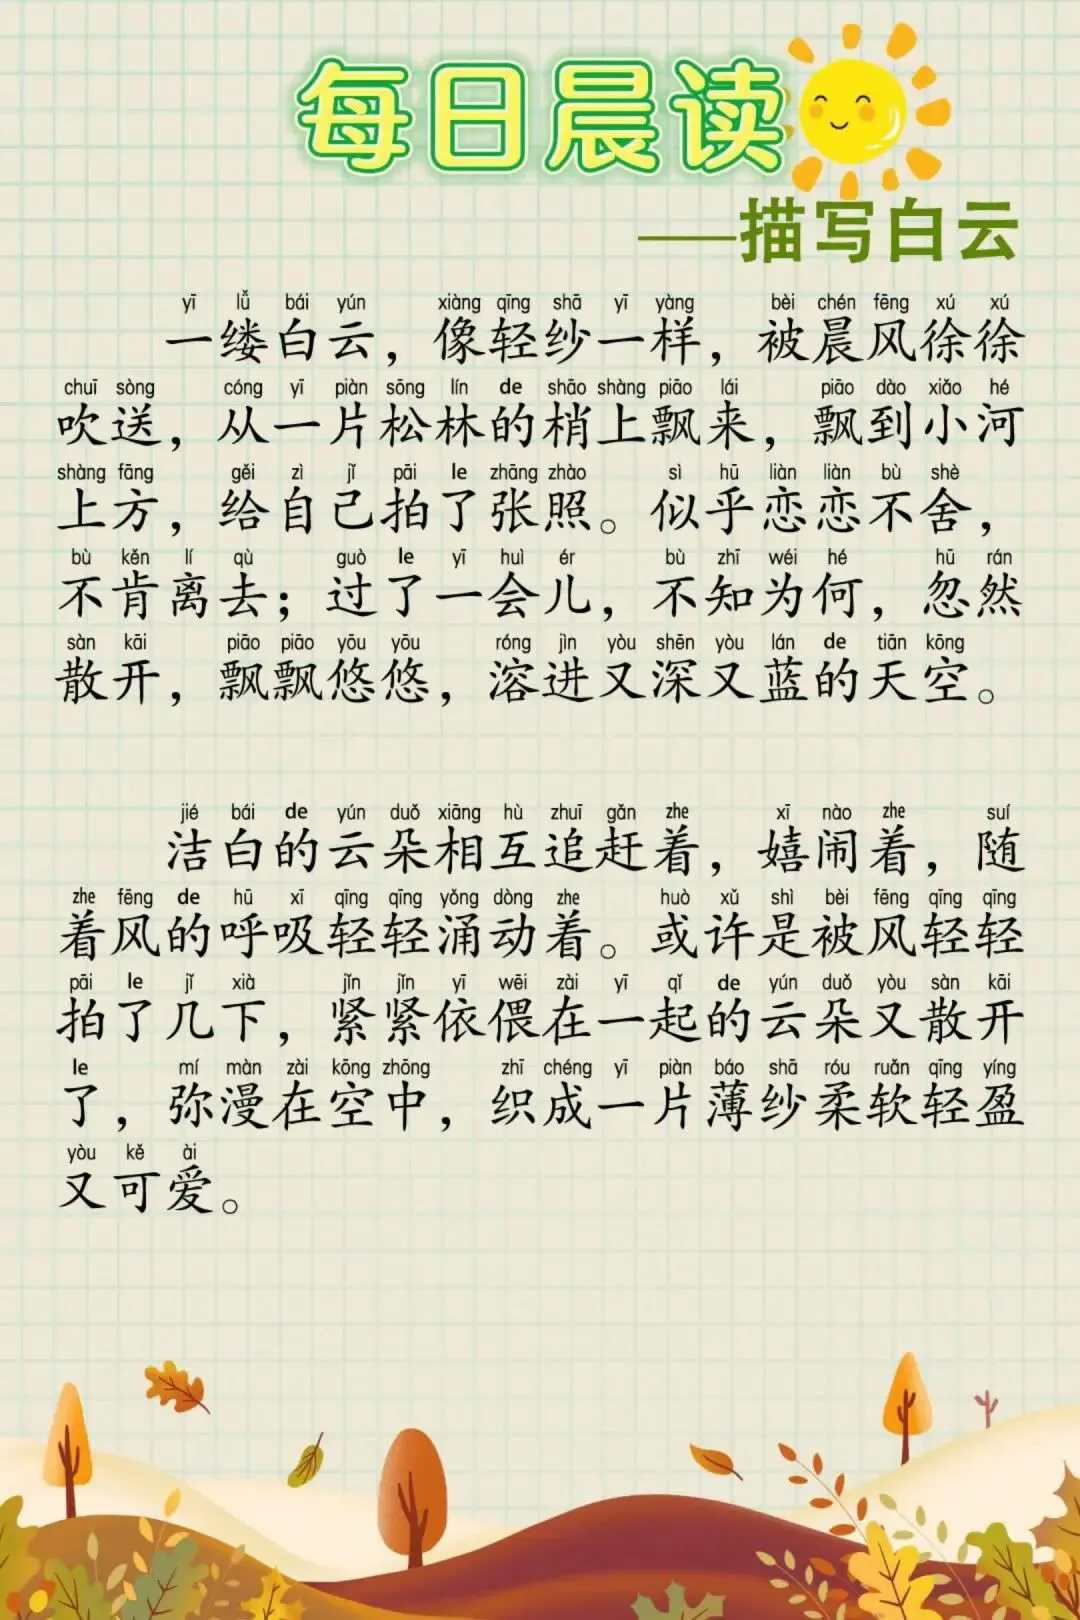 每日晨读
——描写白云
yī lǚ bái yún xiàng qīng shā yī yàng bèi chén fēng xú xú
一缕白云，像轻纱一样，被晨风徐徐
chuī sòng cóng yī piàn sōng lín de shāo shàng piāo lái piāo dào xiǎo hé
吹送，从一片松林的梢上飘来，飘到小河
shàng fāng gěi zì jǐ pāi le zhāng zhào sì hū liàn liàn bù shè
上方，给自己拍了张照。似乎恋恋不舍，
bù kěn lí qù guò le yī huì ér bù zhī wéi hé hū rán
不肯离去；过了一会儿，不知为何，忽然
sàn kāi piāo piāo yōu yōu róng jìn yòu shēn yòu lán de tiān kōng
散开，飘飘悠悠，溶进又深又蓝的天空。
jié bái de yún duǒ xiāng hù zhuī gǎn zhe xī nào zhe suí
洁白的云朵相互追赶着，嬉闹着，随
zhe fēng de hū xī qīng qīng yǒng dòng zhe huò xǔ shì bèi fēng qīng qīng
着风的呼吸轻轻涌动着。或许是被风轻轻
pāi le jǐ xià jǐn jǐn yī wēi zài yī qǐ de yún duǒ yòu sàn kāi
拍了几下，紧紧依偎在一起的云朵又散开
le mí màn zài kōng zhōng zhī chéng yī piàn báo shā róu ruǎn qīng yíng
了，弥漫在空中，织成一片薄纱柔软轻盈
yòu kě ài
又可爱。